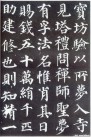 寶坊驗以所夢入寺
見塔禮問禪師聖夢
有孚法名惟肖其日
賜錢五十萬絹千匹
助建修也則知精一